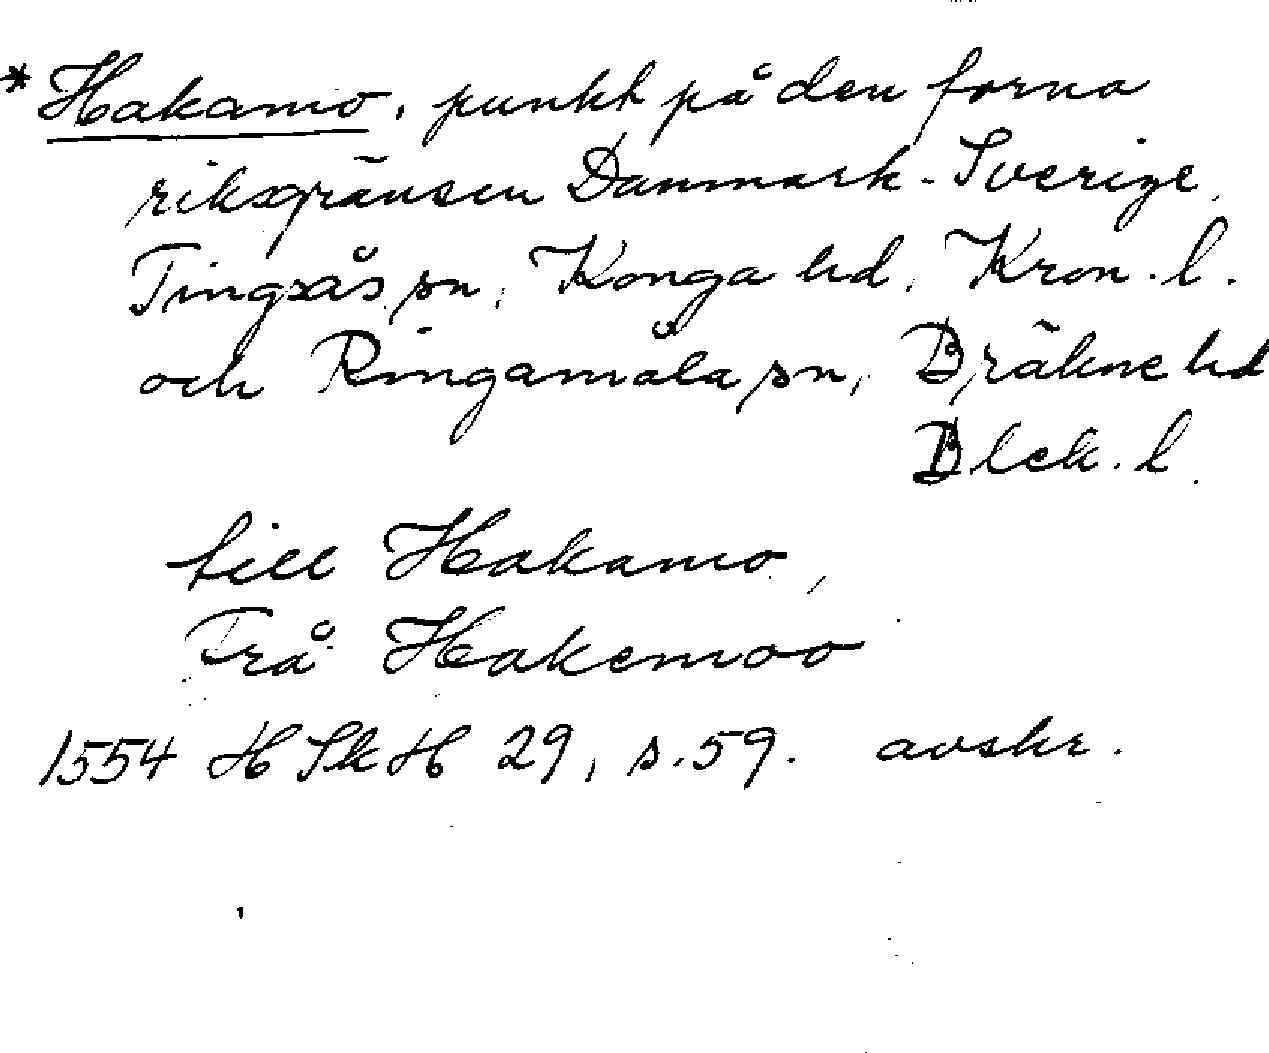 * Hakamo, punkt på den forna
riksgränsen Danmark-Sverige,
Tingsås sn, Konga hd, Kron. l.
och Ringamåla sn, Bräkne hd
Blek. l.
till Hakamo,
Frå Hakemoo
1554 HSkH 29, s. 59. avskr.